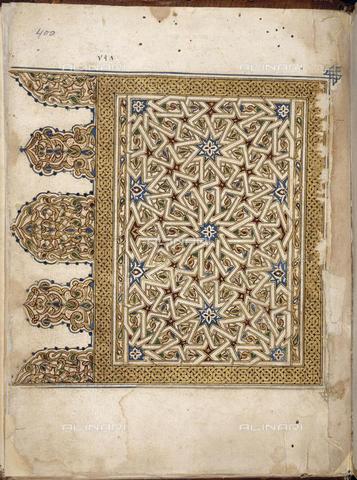 400
٧٩٨
ALINARI
ALINARI
ALINARI